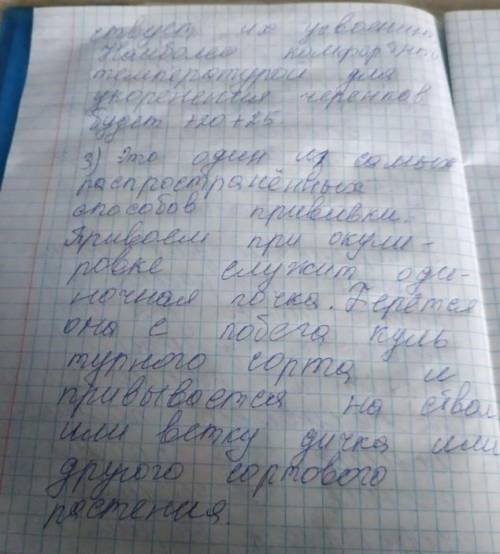 ствует их усвоению
Наиболее комфортной
температурой для
укоренения черенков
будет +20+25.
3) Это один из самых
распространённых
способов прививки.
Привоем при окули-
ровке служит оди-
ночная почка. Берётся
она с побега куль
турного сорта и
прививается на ствол
или ветку дичка или
другого сортового
растения.